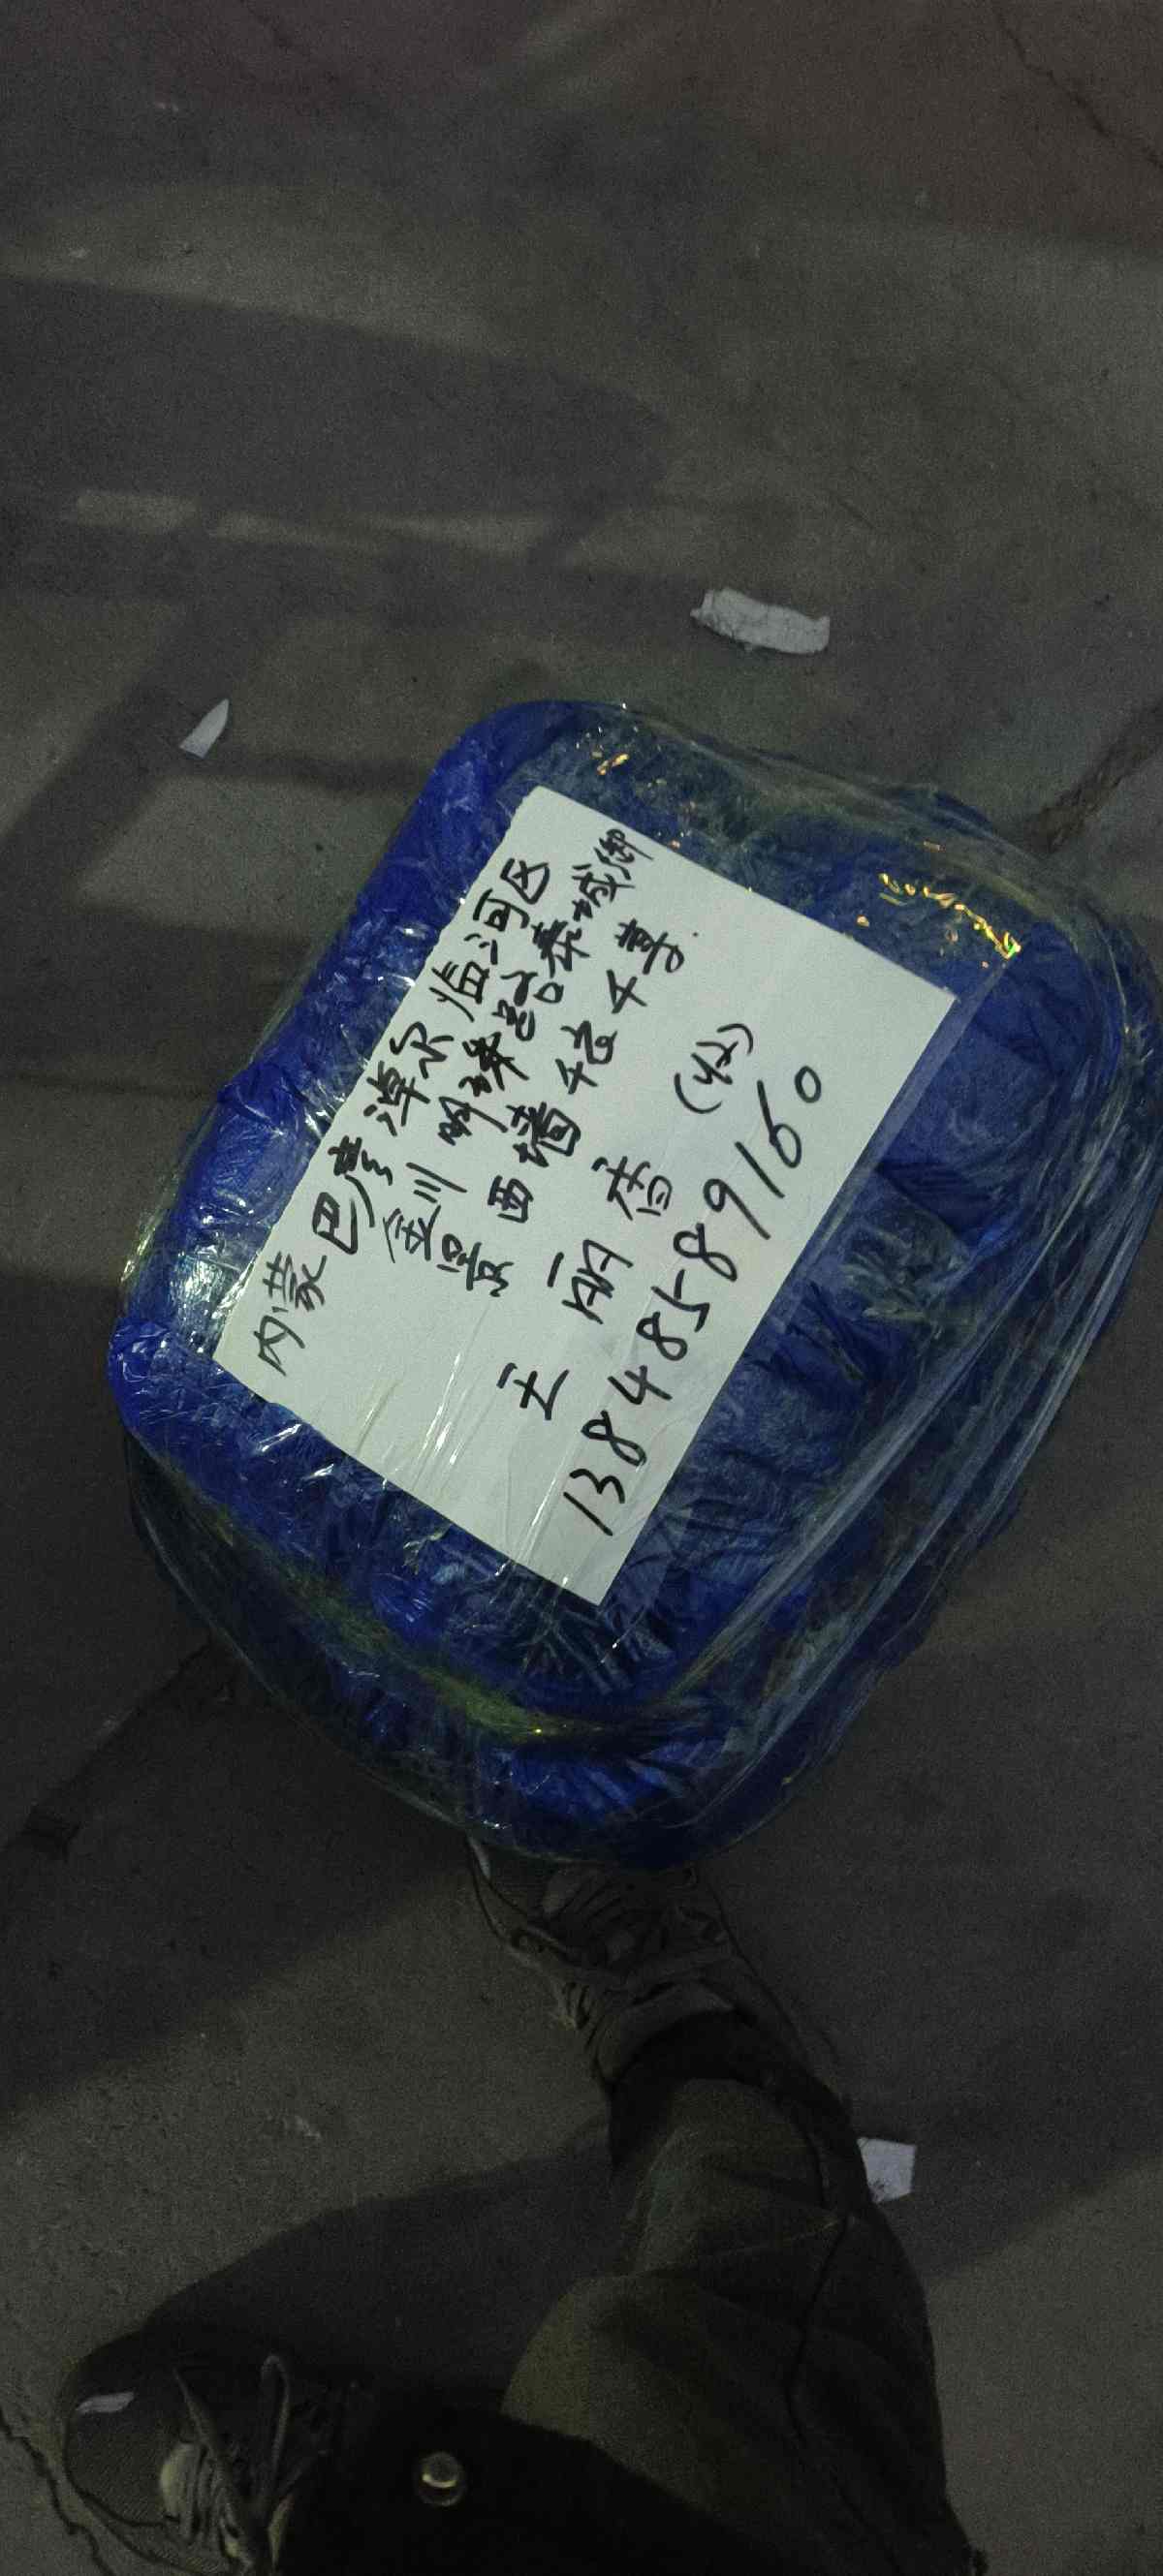 内蒙巴彦淖尔临河区
金川明珠road泰城御
景西墙 千尊
王丽春 (收)
13848589160